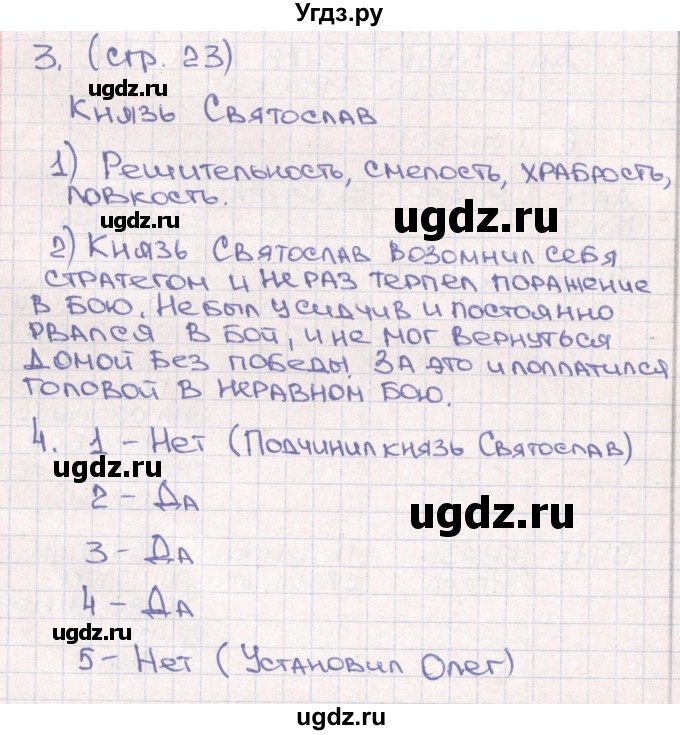 Угдз.ру
3. (стр. 23)
ugdz.ru
Князь Святослав
1) Решительность, смелость, храбрость,
ловкость.
ugdz.ru
ugdz.ru
2) Князь Святослав возомнил себя
стратегом и не раз терпел поражение
в бою. Не был усидчив и постоянно
рвался в бой, и не мог вернуться
домой без победы. За это и поплатился
головой в неравном бою.
4. 1 - Нет (Подчинил князь Святослав)
ugdz.ru
2 - Да
ugdz.ru
3 - Да
4 - Да
ugdz.ru
5 - Нет (Установил Олег)
ugdz.ru